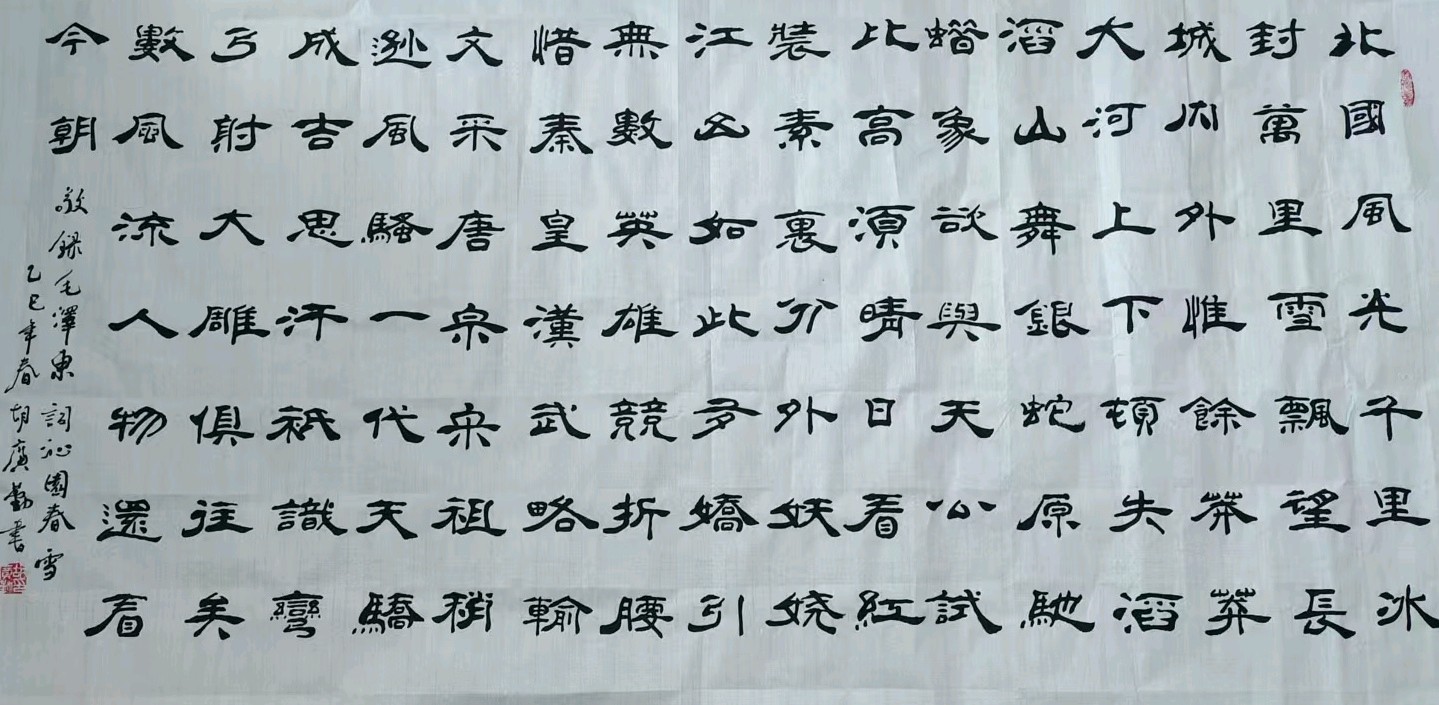 北國風光千里冰
封萬里雪飄望長
城内外惟餘莽莽
大河上下頓失滔
滔山舞銀蛇原馳
蜡象欲與天公試
比高須晴日看紅
裝素裹分外妖娆
江山如此多嬌引
無數英雄競折腰
惜秦皇漢武略輸
文采唐宗宋祖稍
遜風騷一代天驕
成吉思汗祇識彎
弓射大雕俱往矣
數風流人物還看
今朝
敬録毛澤東詞沁園春雪
乙巳年春胡廣勤書